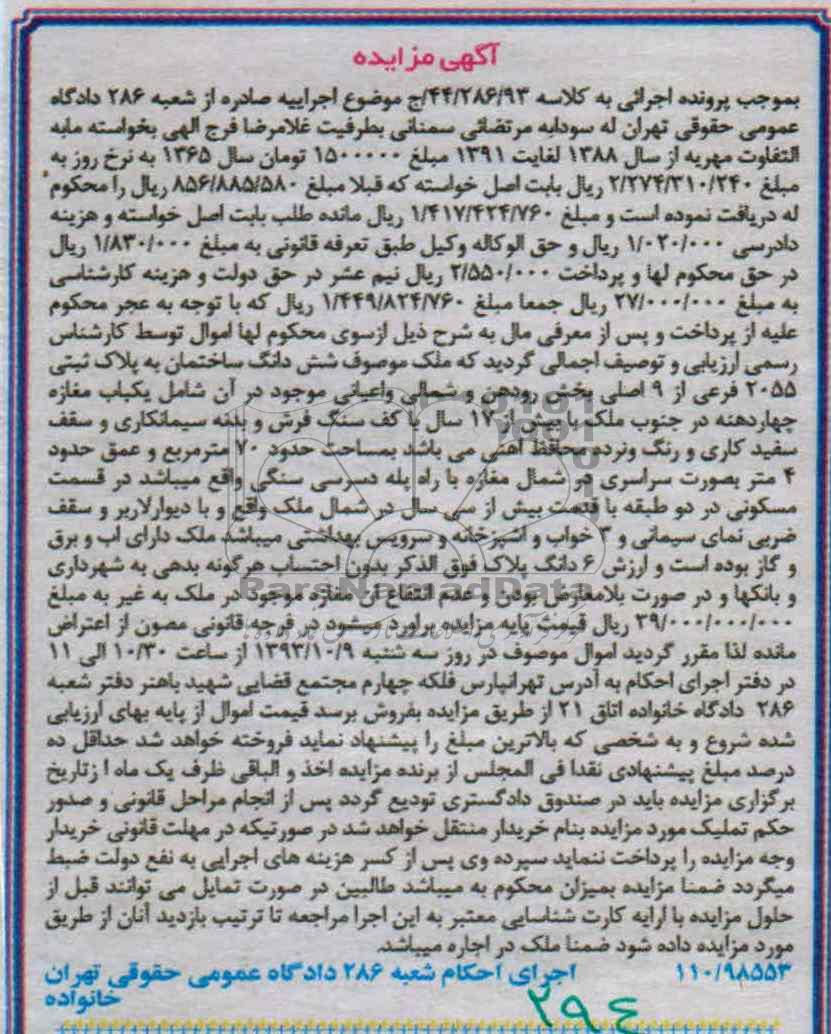 آگهی مزایده
بموجب پرونده اجرائی به کلاسه ۴۴/۲۸۶/۹۳/ج موضوع اجراییه صادره از شعبه ۲۸۶ دادگاه
عمومی حقوقی تهران له سودابه مرتضائی سمنانی بطرفیت غلامرضا فرج الهی بخواسته مابه
التفاوت مهریه از سال ۱۳۸۸ لغایت ۱۳۹۱ مبلغ ۱۵۰۰۰۰۰ تومان سال ۱۳۶۵ به نرخ روز به
مبلغ ۲/۲۷۴/۳۱۰/۲۴۰ ریال بابت اصل خواسته که قبلا مبلغ ۸۵۶/۸۸۵/۵۸۰ ریال را محکوم
له دریافت نموده است و مبلغ ۱/۴۱۷/۴۲۴/۷۶۰ ریال مانده طلب بابت اصل خواسته و هزینه
دادرسی ۱/۰۲۰/۰۰۰ ریال و حق الوکاله وکیل طبق تعرفه قانونی به مبلغ ۱/۸۳۰/۰۰۰ ریال
در حق محکوم لها و پرداخت ۲/۵۵۰/۰۰۰ ریال نیم عشر در حق دولت و هزینه کارشناسی
به مبلغ ۲۷/۰۰۰/۰۰۰ ریال جمعا مبلغ ۱/۴۴۹/۸۲۴/۷۶۰ ریال که با توجه به عجر محکوم
علیه از پرداخت و پس از معرفی مال به شرح ذیل ازسوی محکوم لها اموال توسط کارشناس
رسمی ارزیابی و توصیف اجمالی گردید که ملک موصوف شش دانگ ساختمان به پلاک ثبتی
۲۰۵۵ فرعی از ۹ اصلی بخش رودهن و شمالی واعیانی موجود در آن شامل یکباب مغازه
چهاردهنه در جنوب ملک با بیش از ۱۷ سال با کف سنگ فرش و بدنه سیمانکاری و سقف
سفید کاری و رنگ ونرده محافظ آهنی می باشد بمساحت حدود ۷۰ مترمربع و عمق حدود
۴ متر بصورت سراسری در شمال مغازه با راه پله دسرسی سنگی واقع میباشد در قسمت
مسکونی در دو طبقه با قدمت بیش از سی سال در شمال ملک واقع و با دیوارلاربر و سقف
ضربی نمای سیمانی و ۳ خواب و اشپزخانه و سرویس بهداشتی میباشد ملک دارای اب و برق
و گاز بوده است و ارزش ۶ دانگ پلاک فوق الذکر بدون احتساب هرگونه بدهی به شهرداری
و بانکها و در صورت بلامعارض بودن و عدم انتفاع آن مغازه موجود در ملک به غیر به مبلغ
۳۹/۰۰۰/۰۰۰/۰۰۰ ریال قیمت پایه مزایده براورد میشود در فرجه قانونی مصون از اعتراض
مانده لذا مقرر گردید اموال موصوف در روز سه شنبه ۱۳۹۳/۱۰/۹ از ساعت ۱۰/۳۰ الی ۱۱
در دفتر اجرای احکام به آدرس تهرانپارس فلکه چهارم مجتمع قضایی شهید باهنر دفتر شعبه
۲۸۶ دادگاه خانواده اتاق ۲۱ از طریق مزایده بفروش برسد قیمت اموال از پایه بهای ارزیابی
شده شروع و به شخصی که بالاترین مبلغ را پیشنهاد نماید فروخته خواهد شد حداقل ده
درصد مبلغ پیشنهادی نقدا فی المجلس از برنده مزایده اخذ و الباقی ظرف یک ماه ا زتاریخ
برگزاری مزایده باید در صندوق دادگستری تودیع گردد پس از انجام مراحل قانونی و صدور
حکم تملیک مورد مزایده بنام خریدار منتقل خواهد شد در صورتیکه در مهلت قانونی خریدار
وجه مزایده را پرداخت ننماید سپرده وی پس از کسر هزینه های اجرایی به نفع دولت ضبط
میگردد ضمنا مزایده بمیزان محکوم به میباشد طالبین در صورت تمایل می توانند قبل از
حلول مزایده با ارایه کارت شناسایی معتبر به این اجرا مراجعه تا ترتیب بازدید آنان از طریق
مورد مزایده داده شود ضمنا ملک در اجاره میباشد.
۱۱۰/۹۸۵۵۳ اجرای احکام شعبه ۲۸۶ دادگاه عمومی حقوقی تهران
خانواده
۲۹۴
ParsNamadData